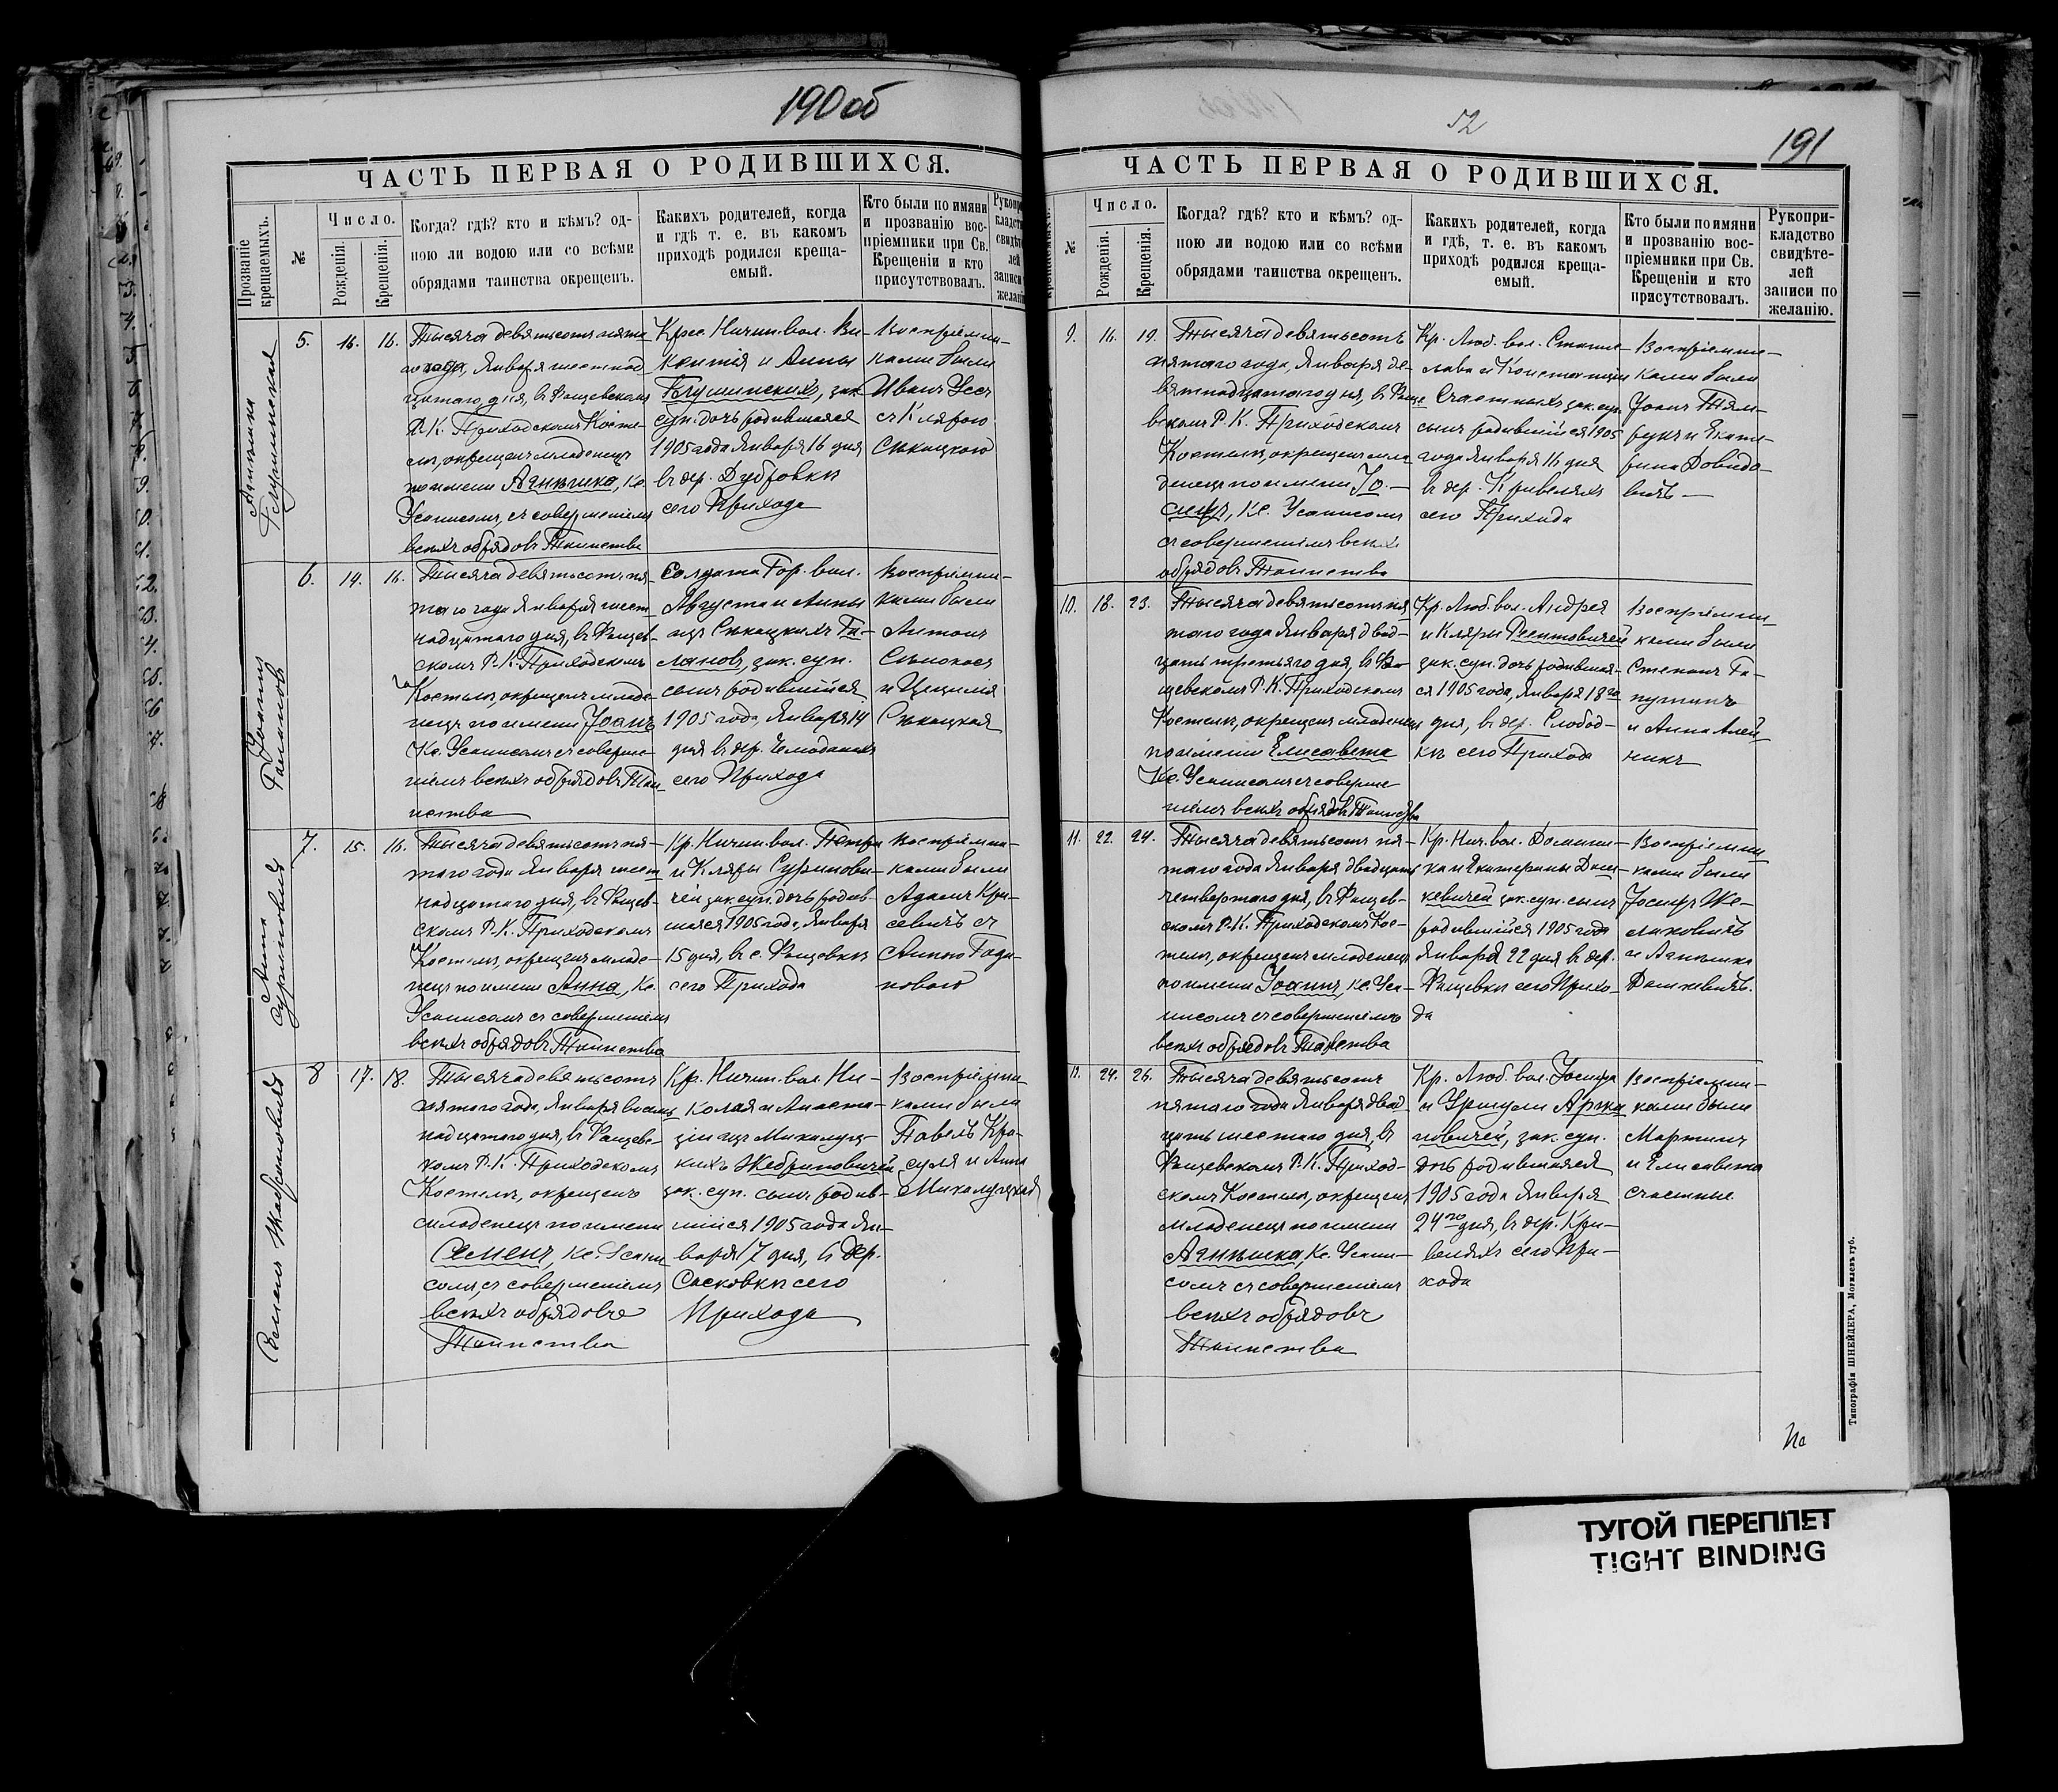 190 об
ЧАСТЬ ПЕРВАЯ О РОДИВШИХСЯ.
Прозваніе крещаемыхъ.
№
Число.
Рожденія.
Крещенія.
Когда? гдѣ? кто и кѣмъ? од-
ною ли водою или со всѣми
обрядами таинства окрещенъ.
Какихъ родителей, когда
и гдѣ т. е. въ какомъ
приходѣ родился креща-
емый.
Кто были по имяни
и прозванію вос-
пріемники при Св.
Крещеніи и кто
присутствовалъ.
5. 16. 16.
Тысяча девятьсотъ пята
го года, Января шестнад
цатаго дня, въ Фащевскомъ
Р. К. Приходскомъ Косте-
лѣ, окрещенъ младенецъ
по имени Агнѣшка, Кс.
съ совершеніемъ
всѣхъ обрядовъ Таинства
Крес. Ничип. вол. Ви-
кентія и Анны
зак.
суп. дочь родившаяся
1905 года Января 16 дня
въ дер. Дубровкѣ
сего Прихода
Воспріемни-
ками были
Иванъ
съ Клярою
Сѣкацкою
6. 14. 16.
Тысяча девятьсотъ пя-
таго года Января шест
надцатаго дня, въ Фащев-
скомъ Р. К. Приходскомъ
Костелѣ, окрещенъ младе-
нецъ по имени Іоанъ
Кс. съ соверше-
ніемъ всѣхъ обрядовъ Таи
нства
Солдата Гор. вол.
Августа и Анны
изъ Сѣкацкихъ Га-
лановъ, зак. суп.
сынъ родившійся
1905 года, Января 14
дня въ дер. Чемоданахъ
сего Прихода
Воспріемни-
ками были
Антонъ
Сѣнокосъ
и Цецилія
Сѣкацкая
Анна
Суриновичъ
7. 15. 16.
Тысяча девятьсотъ пя-
таго года Января шест
надцатаго дня, въ Фащев-
скомъ Р. К. Приходскомъ
Костелѣ, окрещенъ младе-
нецъ по имени Анна, Кс.
съ совершеніемъ
всѣхъ обрядовъ Таинства
Кр. Ничип. вол. Петра
и Кляры Суринови-
чей зак. суп. дочь родив-
шаяся 1905 года, Января
15 дня, въ с. Фащевкѣ
сего Прихода
Воспріемни-
ками были
Адамъ Кри-
севичъ съ
Анною
8 17. 18.
Тысяча девятьсотъ
пятаго года, Января восем
надцатаго дня, въ Фащевс-
комъ Р. К. Приходскомъ
Костелѣ, окрещенъ
младенецъ по имени
Семенъ, Кс.
съ совершеніемъ
всѣхъ обрядовъ
Таинства
Кр. Ничип. вол. Ни-
колая и Анаста-
зіи изъ Микалуц-
кихъ Жебриновичей
зак. суп. сынъ родив-
шійся 1905 года Ян-
варя 17 дня, въ дер.
Сосковкѣ сего
Прихода
Воспріемни-
ками были
Павелъ
и Анна
Микалуцкая
52
191
ЧАСТЬ ПЕРВАЯ О РОДИВШИХСЯ.
№
Число.
Рожденія.
Крещенія.
Когда? гдѣ? кто и кѣмъ? од-
ною ли водою или со всѣми
обрядами таинства окрещенъ.
Какихъ родителей, когда
и гдѣ, т. е. въ какомъ
приходѣ родился креща-
емый.
Кто были по имяни
и прозванію вос-
пріемники при Св.
Крещеніи и кто
присутствовалъ.
Рукопри-
кладство
свидѣте-
лей
записи по
желанію.
9. 16. 19.
Тысяча девятьсотъ
пятаго года, Января де-
вятнадцатаго дня, въ Фаще
вскомъ Р. К. Приходскомъ
Костелѣ, окрещенъ мла-
денецъ по имени Іо-
сифъ, Кс.
съ совершеніемъ всѣхъ
обрядовъ Таинства
Кр. Люб. вол. Станис-
лава и Констанціи
Счастныхъ зак. суп.
сынъ родившійся 1905
года Января 16 дня
въ дер. Кривеляхъ
сего Прихода
Воспріемни-
ками были
и Екате-
рина Довидо-
вичъ
10. 18. 23.
Тысяча девятьсотъ пя
таго года Января двад-
цать третьяго дня, въ Фа
щевскомъ Р. К. Приходскомъ
Костелѣ, окрещенъ младенец
по имени Елисавета
Кс. съ соверше
ніемъ всѣхъ обрядовъ Таинства
Кр. Люб. вол. Андрея
и Кляры
зак. суп. дочь родившая-
ся 1905 года, Января 18го
дня, въ дер. Слобод-
кѣ сего Прихода
Воспріемни-
ками были
Степанъ
и Анна Алей
никъ
11. 22. 24.
Тысяча девятьсотъ пя-
таго года Января двадцать
четвертаго дня, въ Фащев-
скомъ Р. К. Приходскомъ Кос-
телѣ, окрещенъ младенецъ
по имени Іоаннъ, Кс.
съ совершеніемъ
всѣхъ обрядовъ Таинства
Кр. Нич. вол. Домини-
ка и Екатерины Даш-
кевичей зак. суп. сынъ
родившійся 1905 года
Января 22 дня въ дер.
Фащевкѣ сего Прихо-
да
Воспріемни
ками были
Іосифъ
и Агнѣшка
Дашкевичъ.
24. 26.
Тысяча девятьсотъ
пятаго года Января двад-
цать шестаго дня, въ
Фащевскомъ Р. К. Приход-
скомъ Костелѣ, окрещенъ
младенецъ по имени
Агнѣшка, Кс.
съ совершеніемъ
всѣхъ обрядовъ
Таинства
Кр. Люб. вол. Іосифа
и Уршули
зак. суп.
дочь родившаяся
1905 года Января
24го дня, въ дер. Кри-
веляхъ сего При-
хода
Воспріемни-
ками были
Мартинъ
и Елисавета
Счастные
Типографія ШНЕЙДЕРА, Могилевъ губ.
ТУГОЙ ПЕРЕПЛЕТ
TIGHT BINDING